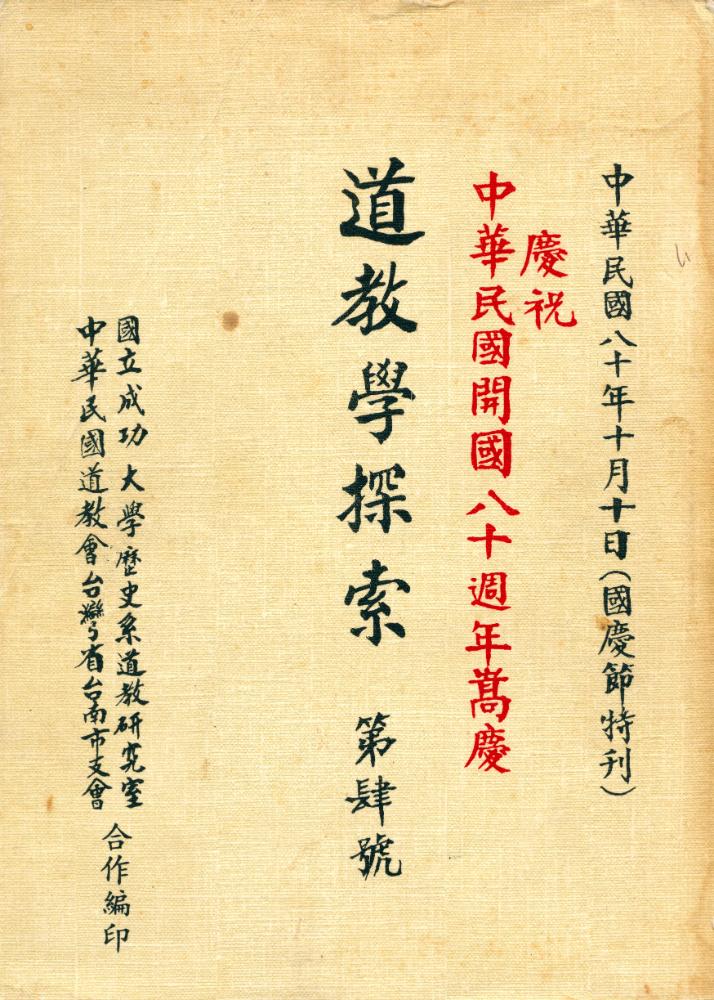 中華民國八十年十月十日(國慶節特刊)
慶祝
中華民國開國八十週年嵩慶
道教學探索 第肆號
國立成功大學歷史系道教研究室
中華民國道教會台灣省台南市支會
合作編印